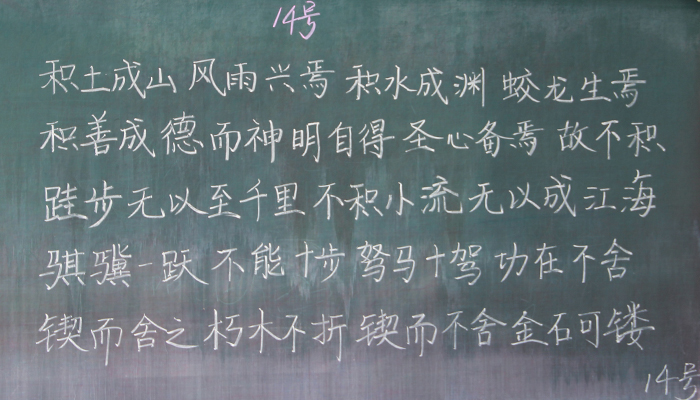 14号
积土成山 风雨兴焉 积水成渊 蛟龙生焉
积善成德 而神明自得 圣心备焉 故不积
跬步 无以至千里 不积小流 无以成江海
骐骥一跃 不能十步 驽马十驾 功在不舍
锲而舍之 朽木不折 锲而不舍 金石可镂
14号